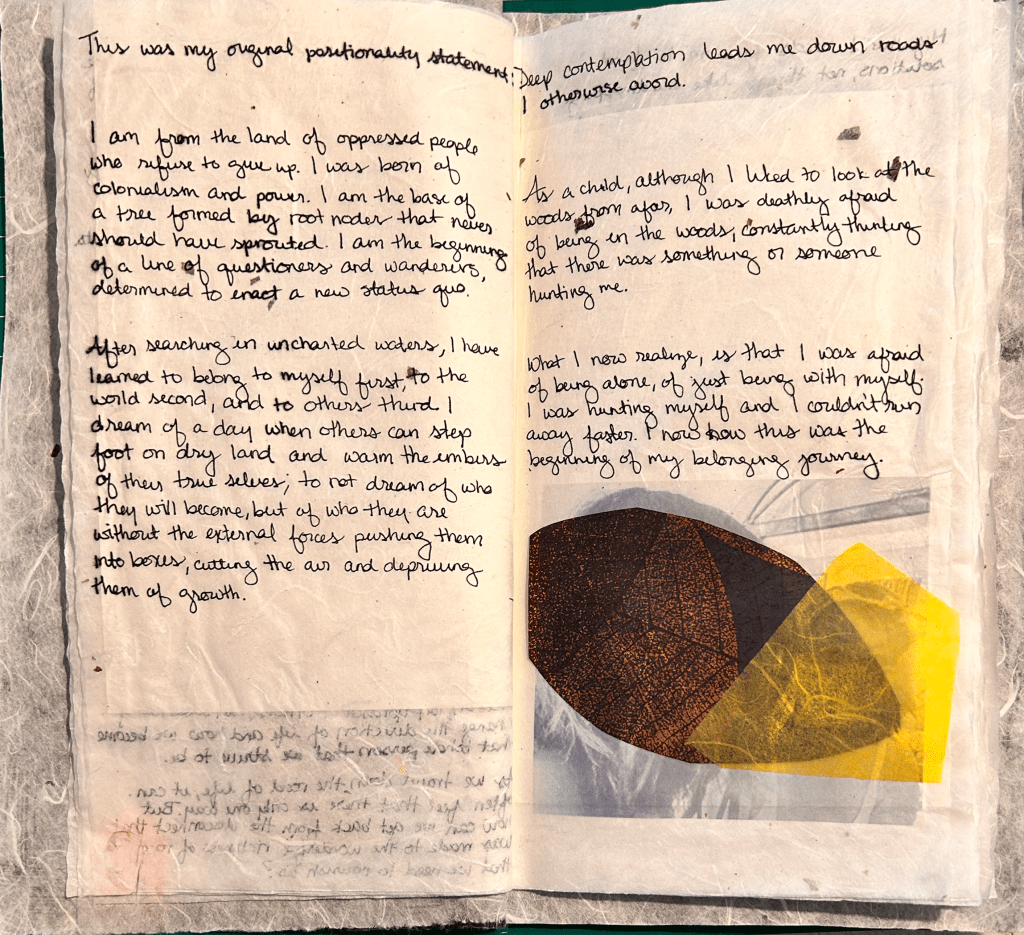 This was my original positionality statement:
I am from the land of oppressed people
who refuse to give up. I was born of
colonialism and power. I am the base of
a tree formed by root nodes that never
should have sprouted. I am the beginning
of a line of questioners and wanderers,
determined to enact a new status quo.
After searching in uncharted waters, I have
learned to belong to myself first, to the
world second, and to others third. I
dream of a day when others can step
foot on dry land and warm the embers
of their true selves; to not dream of who
they will become, but of who they are
without the external forces pushing them
into boxes, cutting the air and depriving
them of growth.
change the direction of life and we become
that whole person that we strive to be.
As we travel down the road of life, it can
often feel that there is only one way. But
how can we get back from the disconnect that
was made to the
that we need to nourish us?
Deep contemplation leads me down roads
I otherwise avoid.
As a child, although I liked to look at the
woods from afar, I was deathly afraid
of being in the woods, constantly thinking
that there was something or someone
hunting me.
What I now realize, is that I was afraid
of being alone, of just being with myself.
I was hunting myself and I couldn't run
away faster. I now know this was the
beginning of my belonging journey.